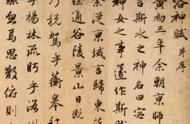 洛神賦并序
黃初三年余朝京師
言斯水之神名曰宓
神女之事遂作斯
余從京域言歸東
越通谷陵景山日
乃税駕乎蘅皋
乎楊林流眄乎洛
忽焉思散俯則